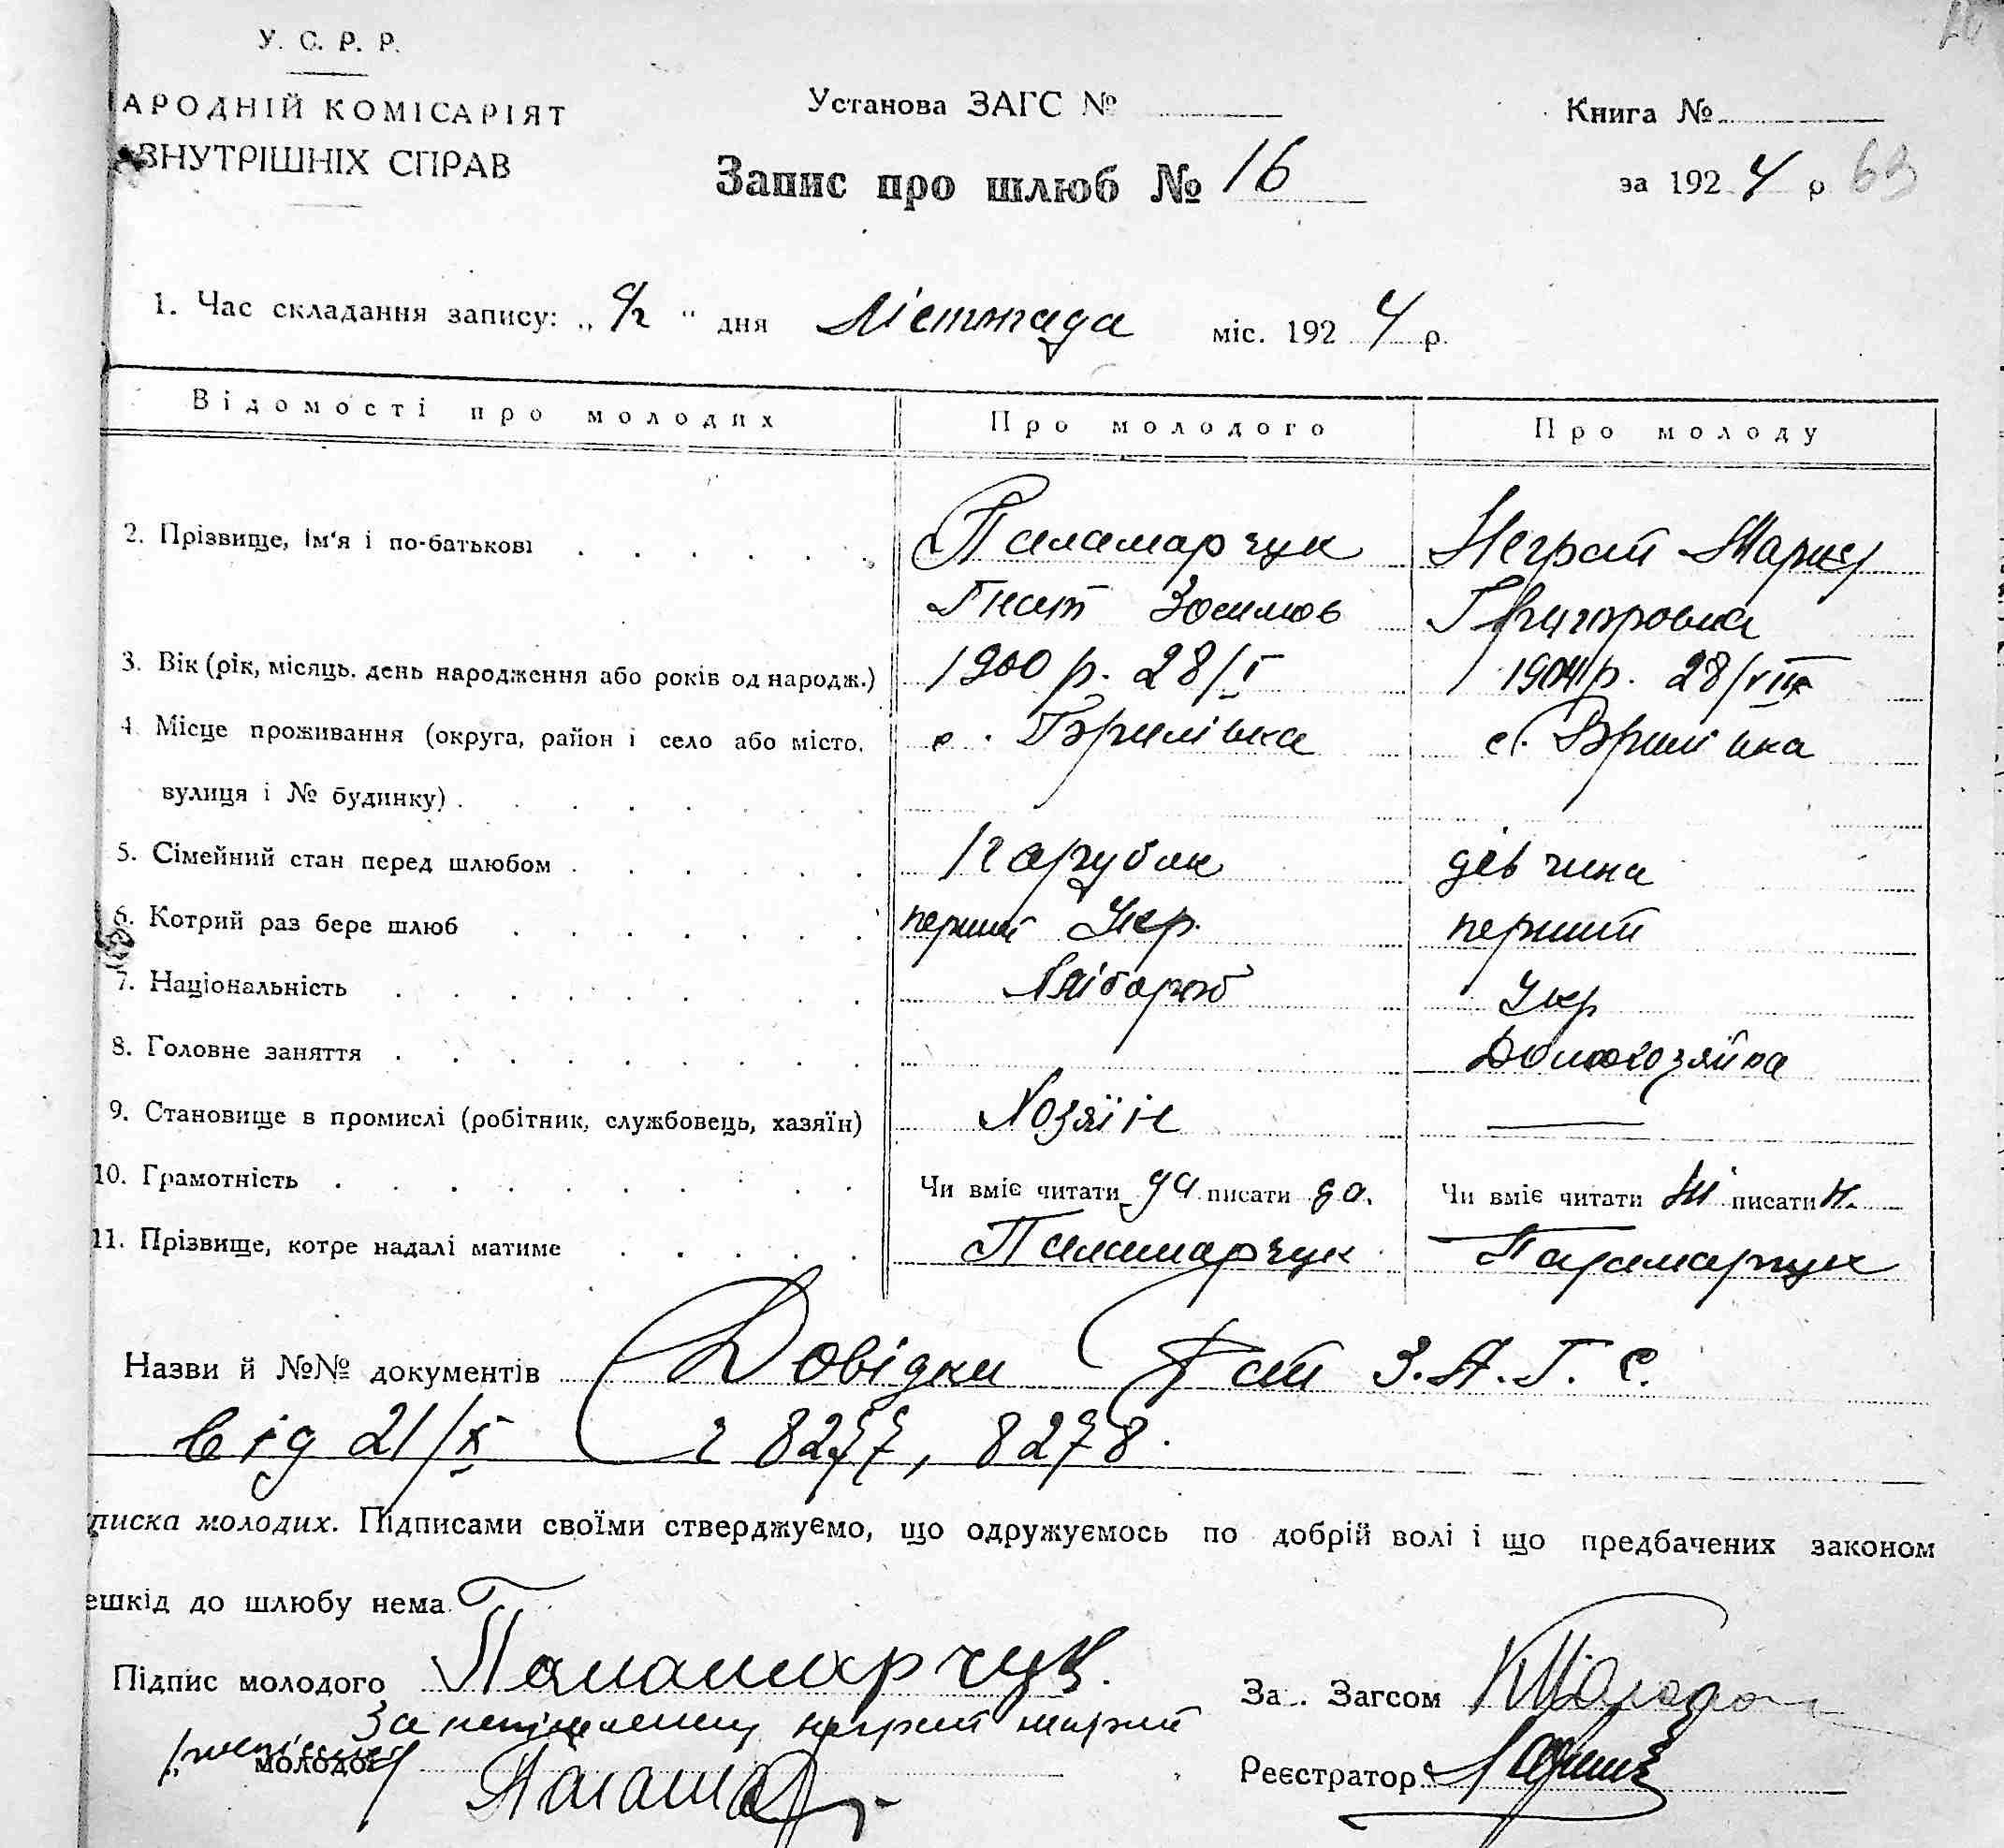 У. С. Р. Р.
АРОДНІЙ КОМІСАРІЯТ
ВНУТРІШНІХ СПРАВ
Установа ЗАГС №
Книга №
Запис про шлюб № 16
за 1924 р 63
1. Час складання запису: „ " дня Лістопада міс. 1924 р.
Відомості про молодих Про молодого Про молоду
2. Прізвище, ім'я і по-батькові Паламарчук Неграй Марія
Гнат Зосимов Григоровна
3. Вік (рік, місяць, день народження або років од народж.) 1900 р. 28/I 1904 р. 28/VIII
4. Місце проживання (округа, район і село або місто, с. Брилівка с. Брилівка
вулиця і № будинку)
5. Сімейний стан перед шлюбом парубок дівчина
6. Котрий раз бере шлюб перший Укр. перший
7. Національність Хлібороб Укр
8. Головне заняття Домохозяйка
9. Становище в промислі (робітник, службовець, хазяїн) Хозяїн —
10. Грамотність Чи вміє читати да писати да. Чи вміє читати ні писати н.
11. Прізвище, котре надалі матиме Паламарчук Паламарчук
Назви й №№ документів Довідки Рай З.А.Г.С.
від 21/X 8277, 8278.
писка молодих. Підписами своїми стверджуємо, що одружуємось по добрій волі і що предбачених законом
ешкід до шлюбу нема.
Підпис молодого Паламарчук.
За неписьменну Неграй Марию
„ молодої
За Загсом
Реєстратор